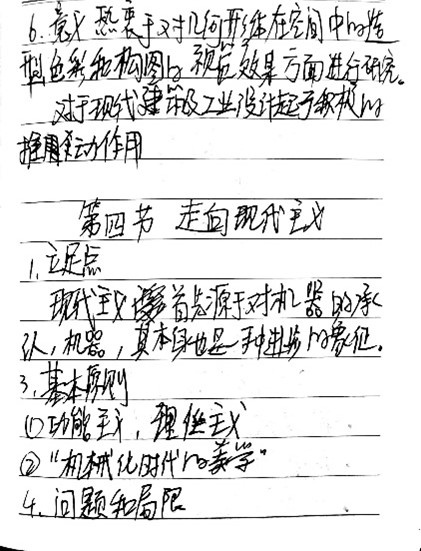 6. 意义 热衷于对几何形体在空间中的造
型色彩和构图的视觉效果方面进行研究。
对于现代建筑及工业设计起了积极的
推动作用
第四节 走向现代主义
1. 立足点
现代主义首先源于对机器的承
认,机器,其本身也是一种进步的象征。
3. 基本原则
①功能主义,理性主义
②"机械化时代的美学"
4. 问题和局限